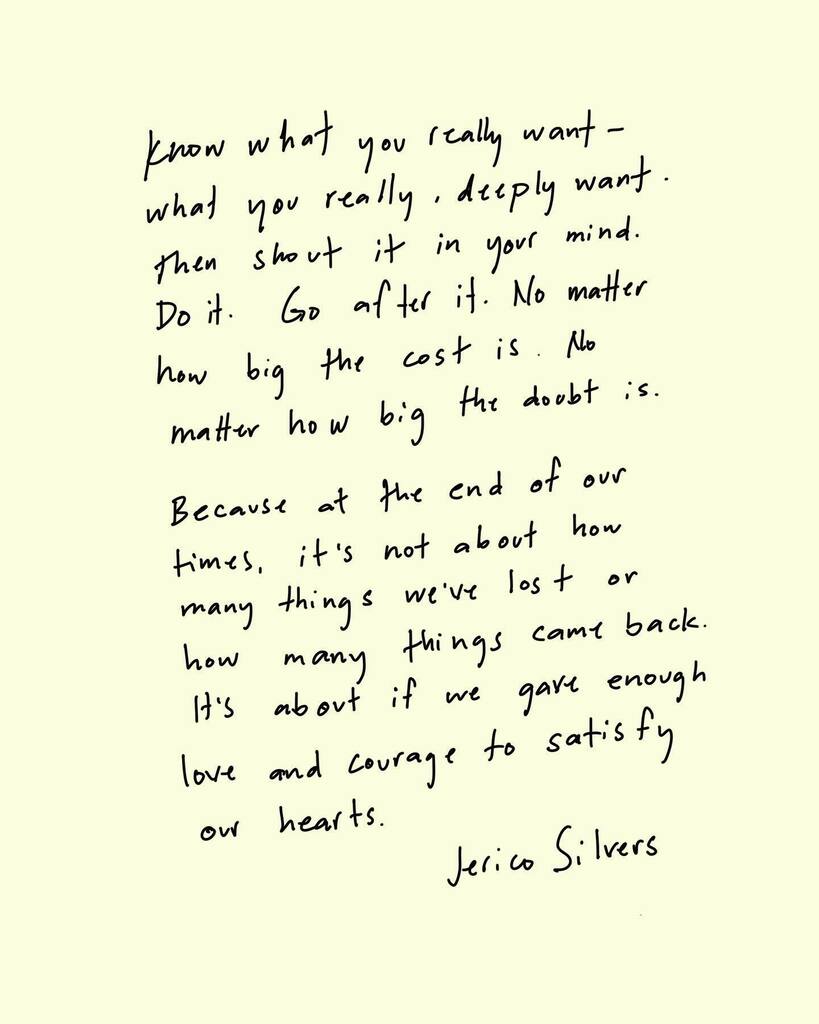 Know what you really want –
what you really, deeply want.
Then shout it in your mind.
Do it. Go after it. No matter
how big the cost is. No
matter how big the doubt is.
Because at the end of our
times, it's not about how
many things we've lost or
how many things came back.
It's about if we gave enough
love and courage to satisfy
our hearts.
Jerico Silvers